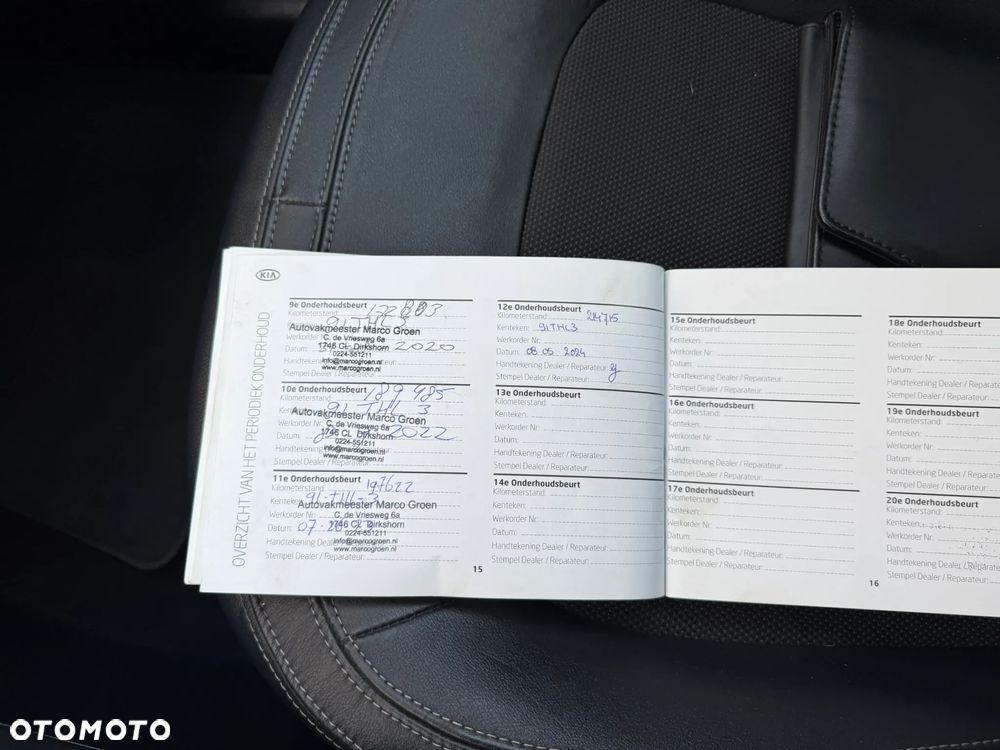 KIA
OVERZICHT VAN HET PERIODIEK ONDERHOUD
9e Onderhoudsbeurt
Kilometerstand:
91THL3
Autovakmeester Marco Groen
C. de Vriesweg 6a
1746 CL Dirkshorn
Datum: 2020
0224-551211
info@marcogroen.nl
www.marcogroen.nl
Stempel Dealer / Reparateur:
10e Onderhoudsbeurt 189 485
Kilometerstand:
91 THL 3
Autovakmeester Marco Groen
C. de Vriesweg 6a
1746 CL Dirkshorn
Datum: 2022
0224-551211
Handtekening
info@marcogroen.nl
www.marcogroen.nl
Stempel Dealer / Reparateur:
11e Onderhoudsbeurt
Kilometerstand: 197622
Kenteken: 91-THL-3
Autovakmeester Marco Groen
Werkorder Nr: C. de Vriesweg 6a
1746 CL Dirkshorn
Datum: 07
0224-551211
Handtekening Dealer
info@marcogroen.nl
www.marcogroen.nl
Stempel Dealer / Reparateur:
12e Onderhoudsbeurt
Kilometerstand: 214715
Kenteken: 91THL3
Werkorder Nr:
Datum: 08.05.2024
Handtekening Dealer / Reparateur:
Stempel Dealer / Reparateur:
13e Onderhoudsbeurt
Kilometerstand:
Kenteken:
Werkorder Nr:
Datum:
Handtekening Dealer / Reparateur:
Stempel Dealer / Reparateur:
14e Onderhoudsbeurt
Kilometerstand:
Kenteken:
Werkorder Nr:
Datum:
Handtekening Dealer / Reparateur:
Stempel Dealer / Reparateur:
15
15e Onderhoudsbeurt
Kilometerstand:
Kenteken:
Werkorder Nr:
Datum:
Handtekening Dealer / Reparateur:
Stempel Dealer / Reparateur:
16e Onderhoudsbeurt
Kilometerstand:
Kenteken:
Werkorder Nr:
Datum:
Handtekening Dealer / Reparateur:
Stempel Dealer / Reparateur:
17e Onderhoudsbeurt
Kilometerstand:
Kenteken:
Werkorder Nr:
Datum:
Handtekening Dealer / Reparateur:
Stempel Dealer / Reparateur:
16
18e Onderhoudsbeurt
Kilometerstand:
Kenteken:
Werkorder Nr:
Datum:
Handtekening Dealer / Reparateur
Stempel Dealer / Reparateur:
19e Onderhoudsbeurt
Kilometerstand:
Kenteken:
Werkorder Nr:
Datum:
Handtekening Dealer / Reparate
Stempel Dealer / Reparateur:
20e Onderhoudsbeurt
Kilometerstand:
Kenteken:
Werkorder Nr:
Datum:
Handtekening Dealer
Stempel Dealer / Reparateur:
OTOMOTO